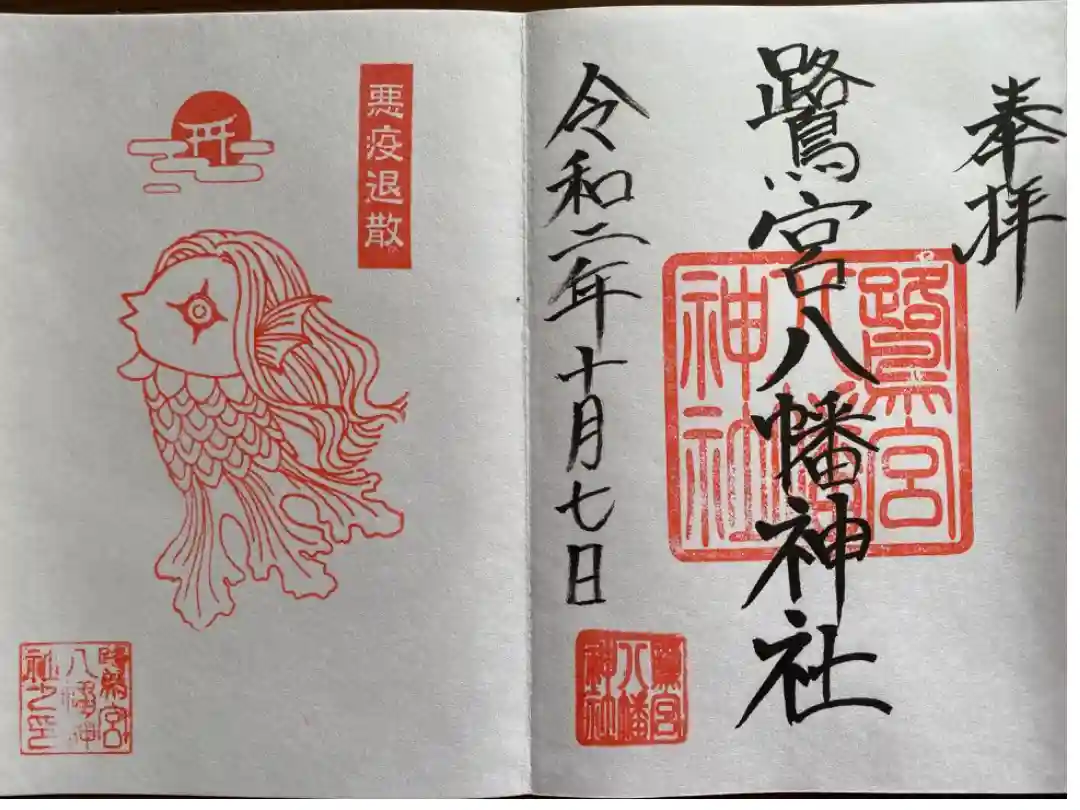 奉拝
鷺宮八幡神社
鷺宮
八幡
神社
令和二年十月七日
鷺宮
八幡
神社
悪疫退散
鷺宮
八幡神
社之印